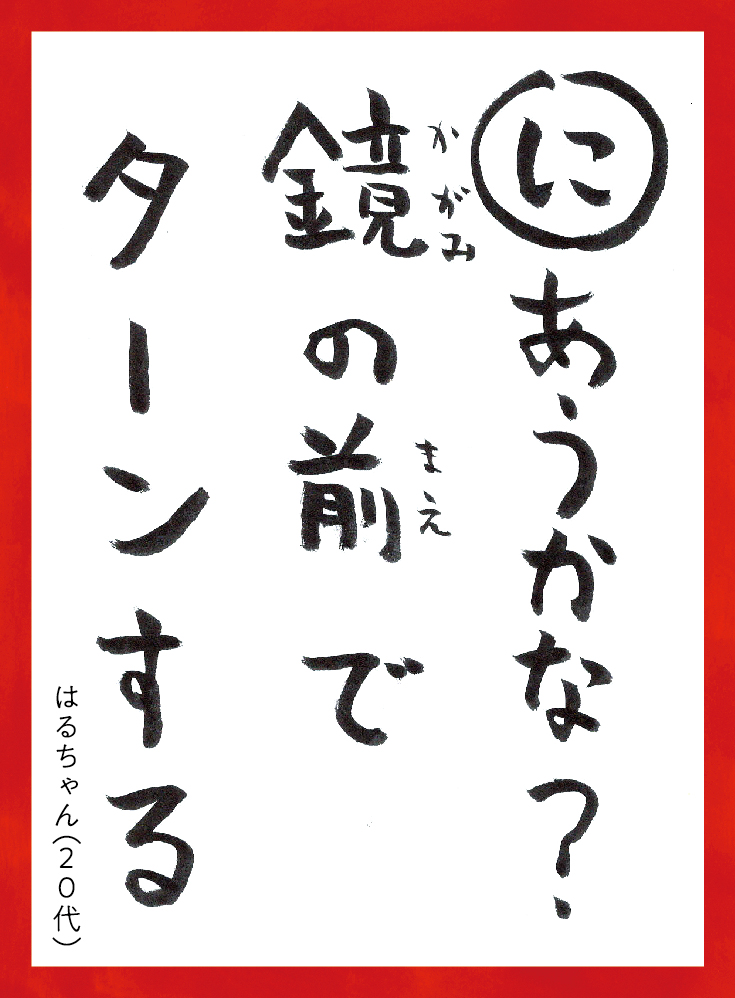 にあうかな?
鏡の前で
かがみ
まえ
ターンする
はるちゃん(20代)